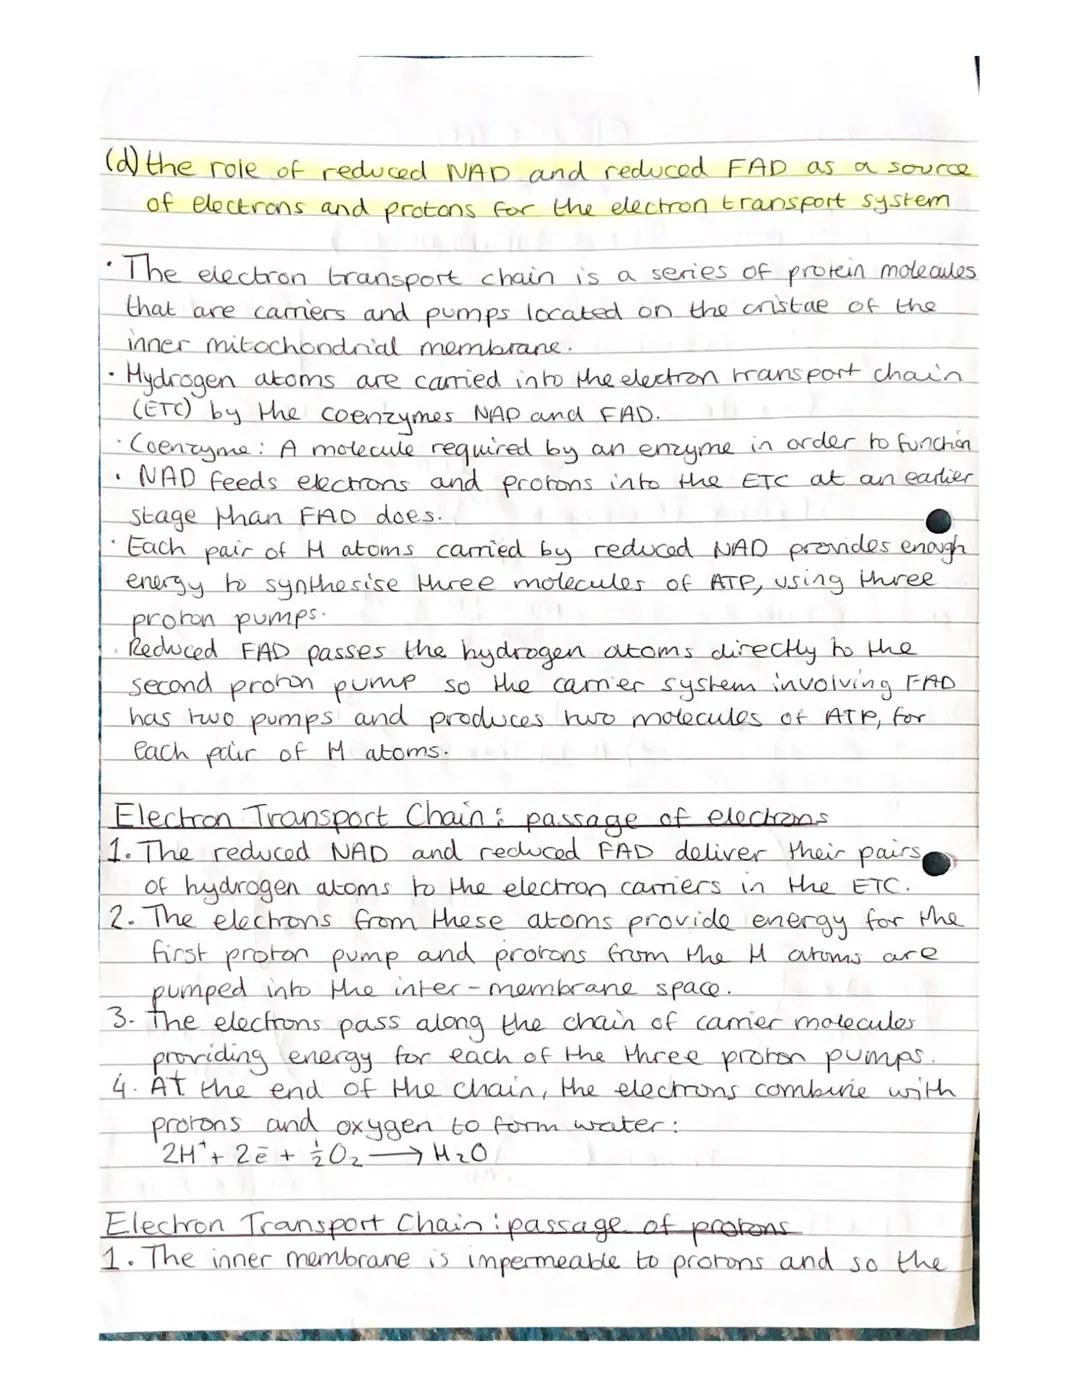 (d) the role of reduced NAD and reduced FAD as a source
of electrons and protons for the electron transport system
· The electron transport chain is a series of protein molecules
that are carriers and pumps located on the cristae of the
inner mitochondrial membrane.
· Hydrogen atoms are carried into the electron transport chain
(ETC) by the coenzymes NAD and FAD.
· Coenzyme: A molecule required by an enzyme in order to function
· NAD feeds electrons and protons into the ETC at an earlier
stage than FAD does.
· Each pair of H atoms carried by reduced NAD provides enough
energy to synthesise three molecules of ATP, using three
proton pumps.
· Reduced FAD passes the hydrogen atoms directly to the
second proton pump so the carrier system involving FAD
has two pumps and produces two molecules of ATP, for
each pair of H atoms.
Electron Transport Chain: passage of electrons
1. The reduced NAD and reduced FAD deliver their pairs
of hydrogen atoms to the electron carriers in the ETC.
2. The electrons from these atoms provide energy for the
first proton pump and protons from the H atoms are
pumped into the inter-membrane space.
3. The electrons pass along the chain of carrier molecules
providing energy for each of the three proton pumps.
4. At the end of the chain, the electrons combine with
protons and oxygen to form water:
2H⁺ + 2ē + ½O₂ → H₂O
Electron Transport Chain: passage of protons
1. The inner membrane is impermeable to protons and so the